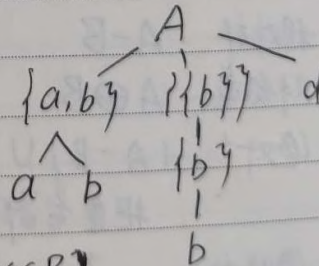 A
{a,b} {{b}} d
a b {b}
b